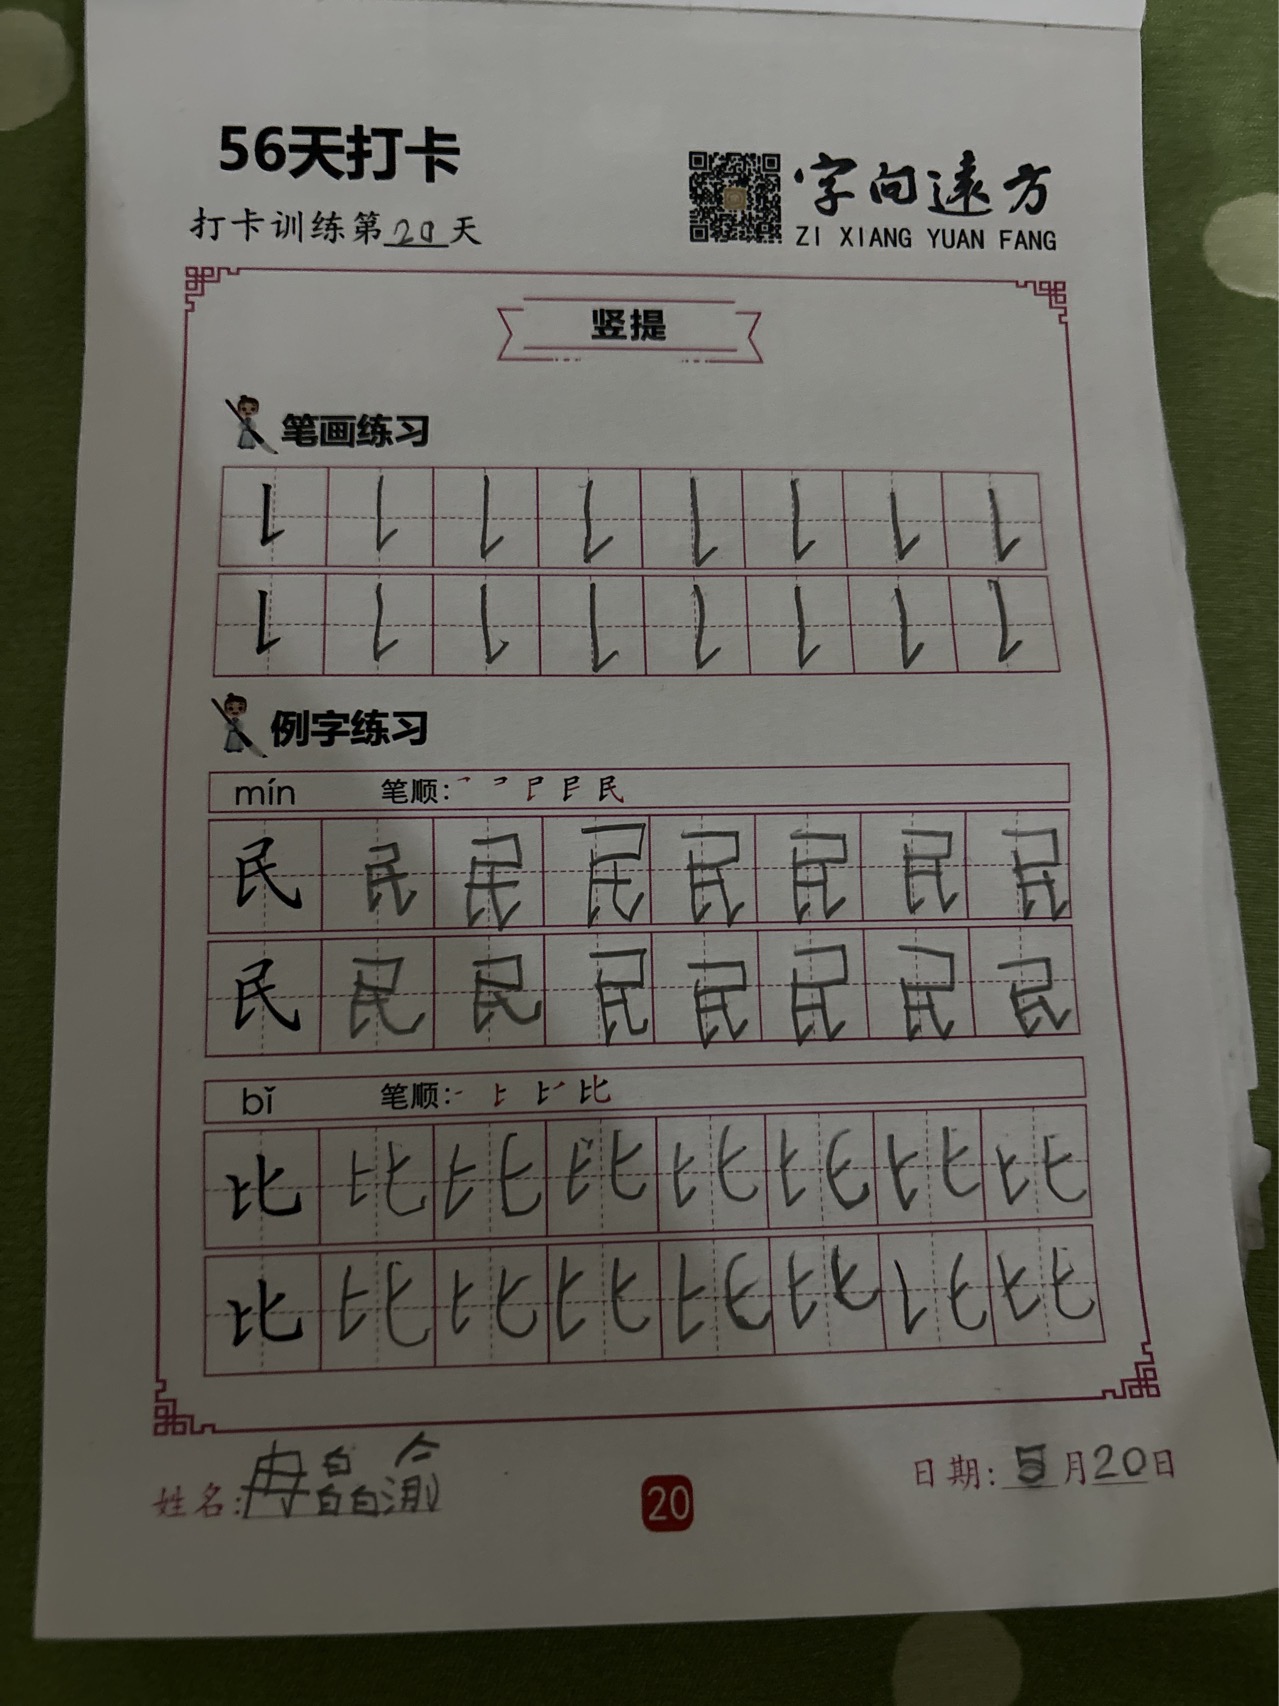 56天打卡
打卡训练第20天
字向遠方
ZI XIANG YUAN FANG
竖提
笔画练习
例字练习
mín 笔顺: 民
民 民 民 民 民 民 民 民
民 民 民 民 民 民 民 民
bǐ 笔顺: 比
比 比 比 比 比 比 比 比
比 比 比 比 比 比 比
姓名:冉皛渝
20
日期:5月20日